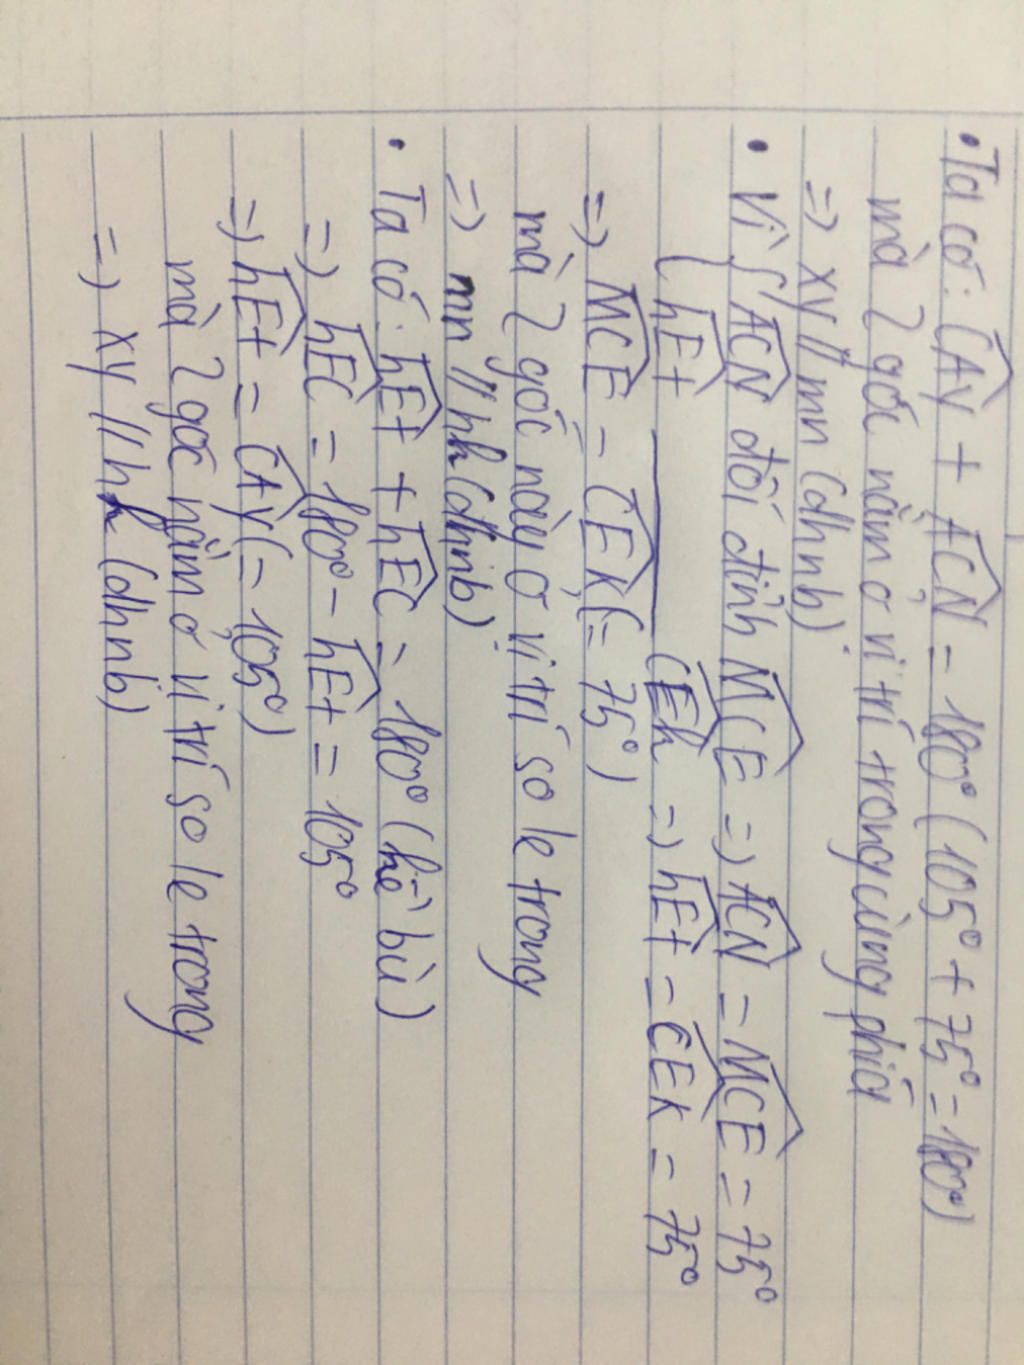 • Ta có: CAy + ACN = 180° (105° + 75° = 180°)
mà 2 góc nằm ở vị trí trong cùng phía
=> xy // mn (dhnb)
• Vì { ACN đối đỉnh MCE => ACN = MCE = 75°
hEt CEk => hEt = CEk = 75°
=> MCE = CEK (= 75°)
mà 2 góc này ở vị trí so le trong
=> mn // hk (dhnb)
• Ta có: hEt + hEC = 180° (kề bù)
=> hEC = 180° - hEt = 105°
=> hEt = CAy (= 105°)
mà 2 góc nằm ở vị trí so le trong
=> xy // hk (dhnb)